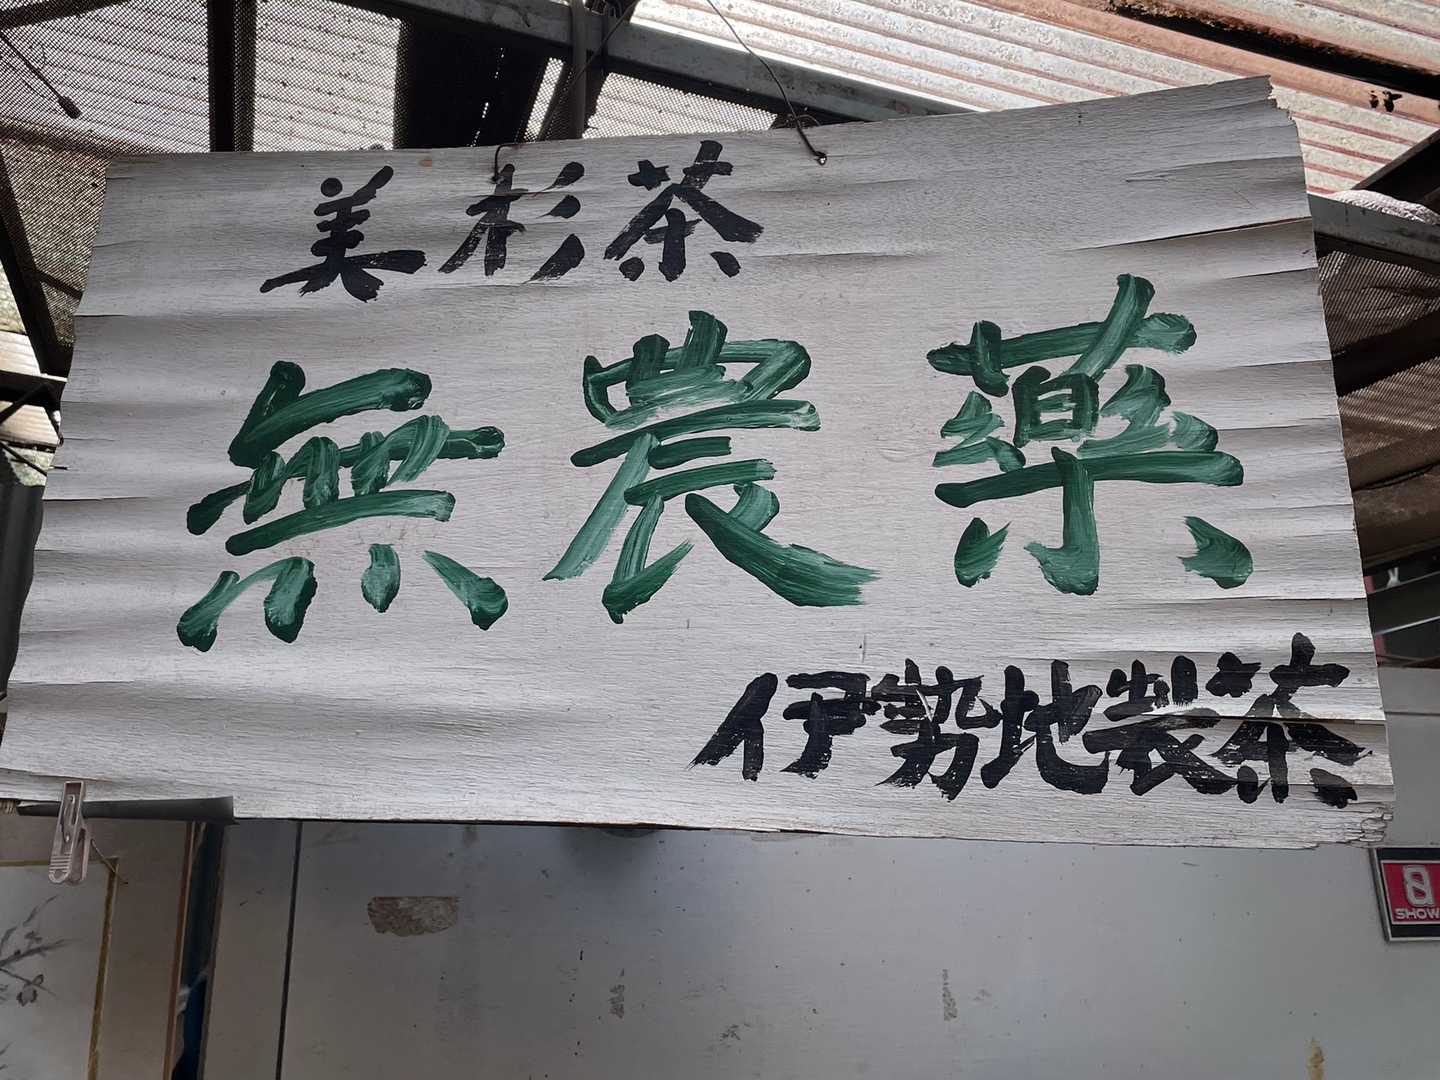 美杉茶
無農薬
伊勢地製茶
SHOW